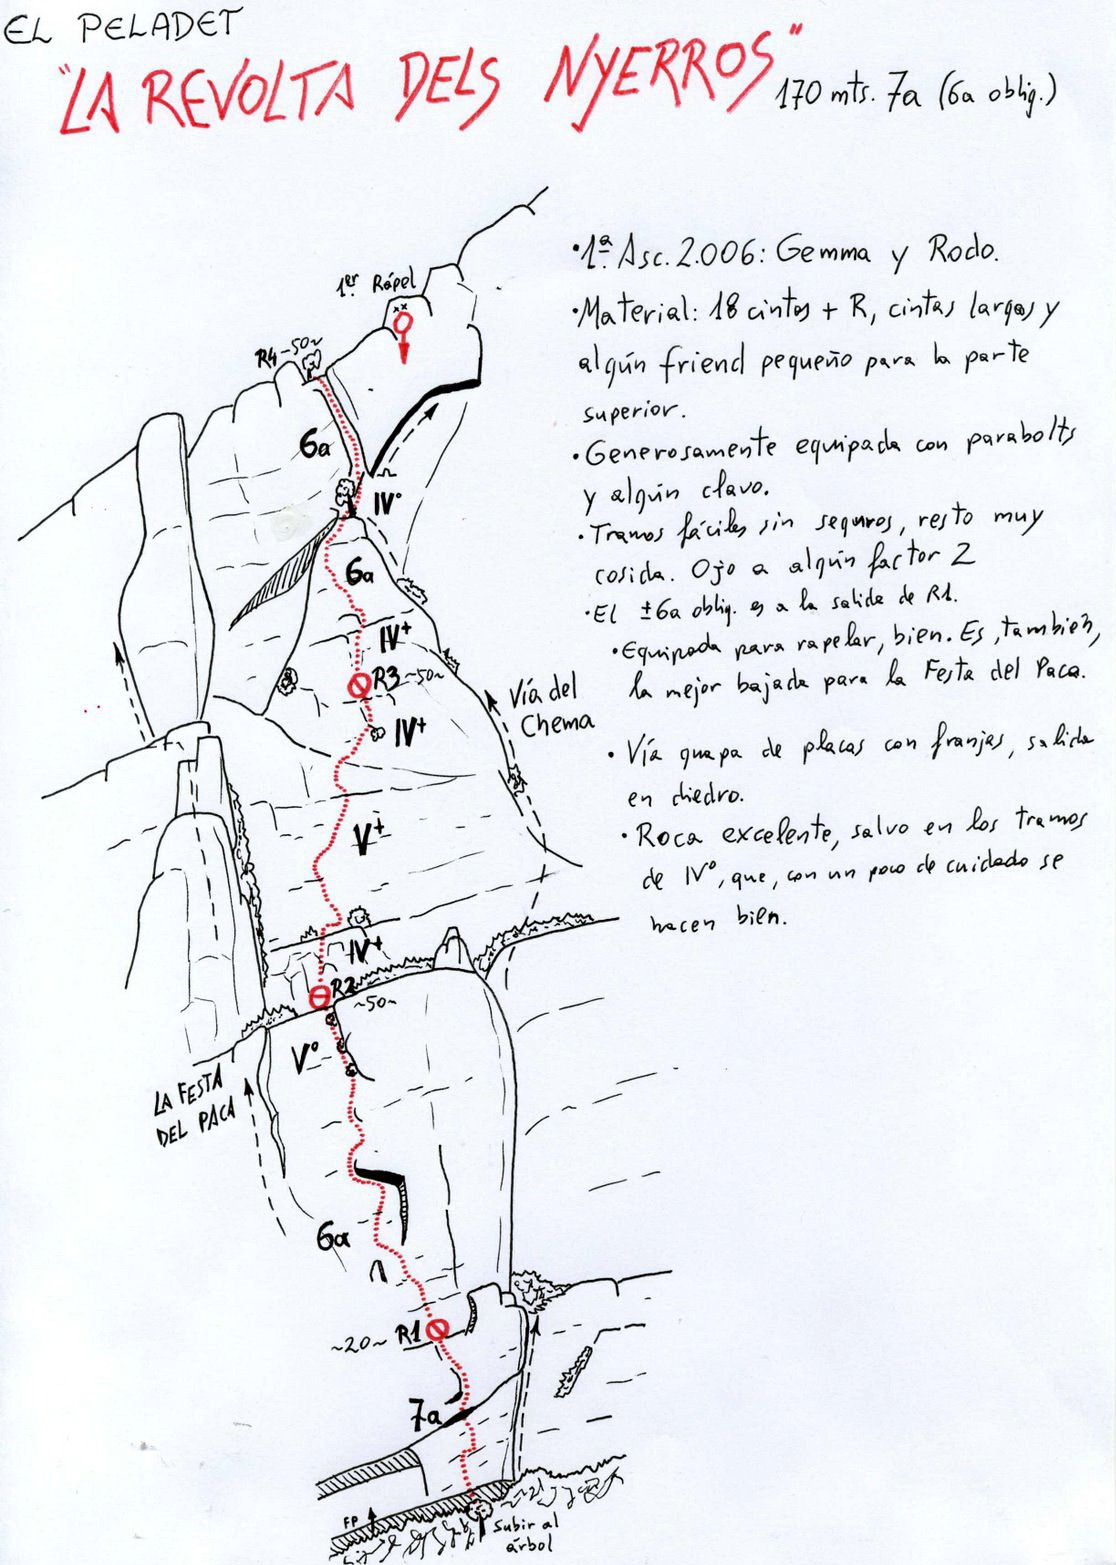 EL PELADET
"LA REVOLTA DELS NYERROS"
170 mts. 7a (6a oblig.)
1er Rápel
R4 ~50~
6a
IV°
6a
IV+
R3 ~50~
IV+
Vía del
Chema
V+
IV+
R2
~50~
V°
LA FESTA
DEL PACA
6a
~20~ R1
7a
FP
Subir al
árbol
•1ª Asc. 2.006: Gemma y Rodo.
•Material: 18 cintas + R, cintas largas y
algún friend pequeño para la parte
superior.
•Generosamente equipada con parabolts
y algún clavo.
•Tramos fáciles sin seguros, resto muy
cosida. Ojo a algún factor 2
•El ±6a oblig. es a la salida de R1.
•Equipada para rapelar, bien. Es, también,
la mejor bajada para la Festa del Paca.
•Vía guapa de placas con franjas, salida
en diedro.
•Roca excelente, salvo en los tramos
de IV°, que, con un poco de cuidado se
hacen bien.